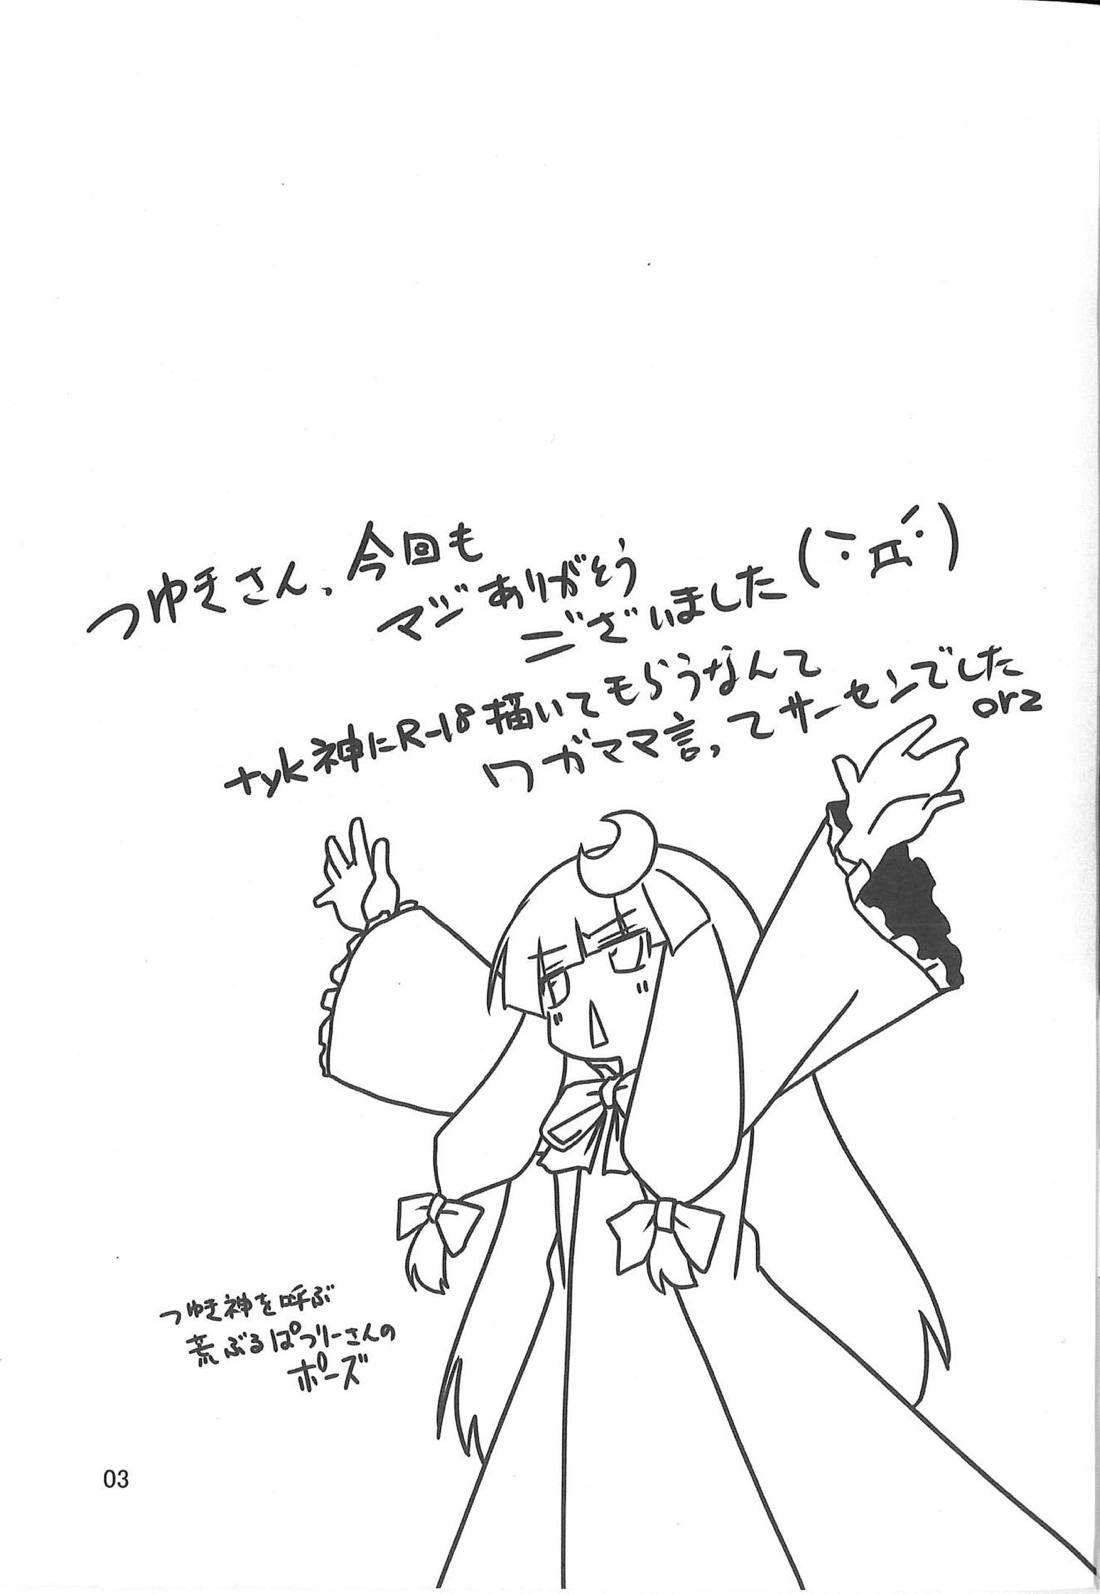 つゆきさん、今回も
マジありがとう
ございました(｀Д´)
tyk神にR-18描いてもらうなんて
ワガママ言ってサーセンでした
orz
つゆき神を呼ぶ
荒ぶるぱつりーさんの
ポーズ
03